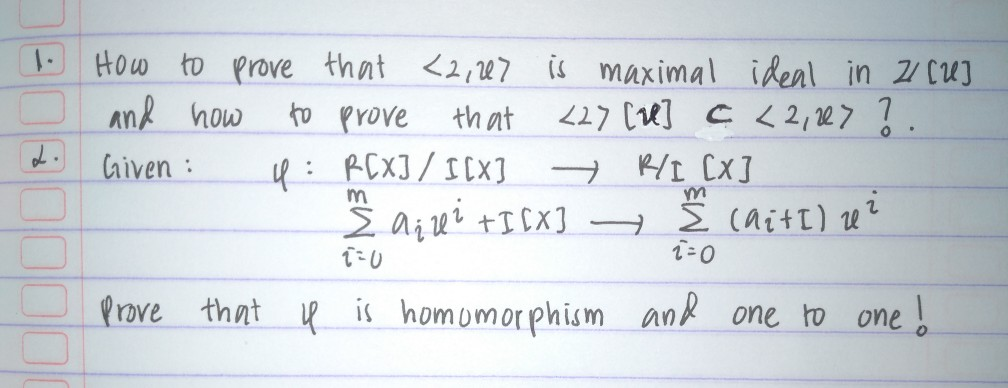 1. How to prove that <2,x> is maximal ideal in Z[x]
and how to prove that <2>[x] ⊂ <2,x> ?.
2. Given : φ : R[X]/I[X] → R/I [X]
m m
Σ aᵢxⁱ + I[X] → Σ (aᵢ+I) xⁱ
i=0 i=0
Prove that φ is homomorphism and one to one!